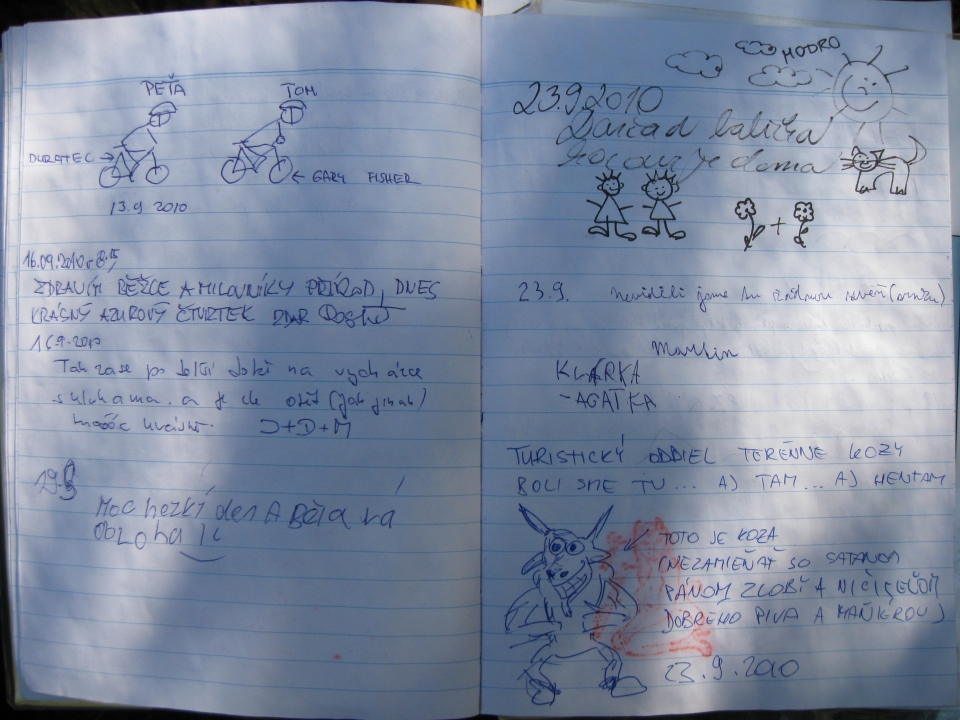 PEŤA
TOM
DURATEC
GARY FISHER
13.9 2010
16.09.2010
ZDRAVÍM BĚŽCE A MILOVNÍKY PŘÍROD, DNES
KRÁSNÝ AZUROVÝ ČTVRTEK ZDAR
16.9.2010
Tak zase po delší době na vycházce
s a je to (jak jinak)
J+D+M
19.9
Moc hezkí den A Běla vá
obloha
MODRO
23.9.2010
babička
kocour je doma
+
23.9. neviděli jsme tu žádnou
Martin
KLÁRKA
-AGÁTKA
TURISTICKÝ ODDIEL TERÉNNE KOZY
BOLI SME TU... AJ TAM... AJ HENTAM
TOTO JE KOZA
(NEZAMIEŇAŤ SO SATANOM
PÁNOM ZLOBÝ A NIČITEĽOM
DOBRÉHO PIVA A MAŇIEROV)
23.9.2010